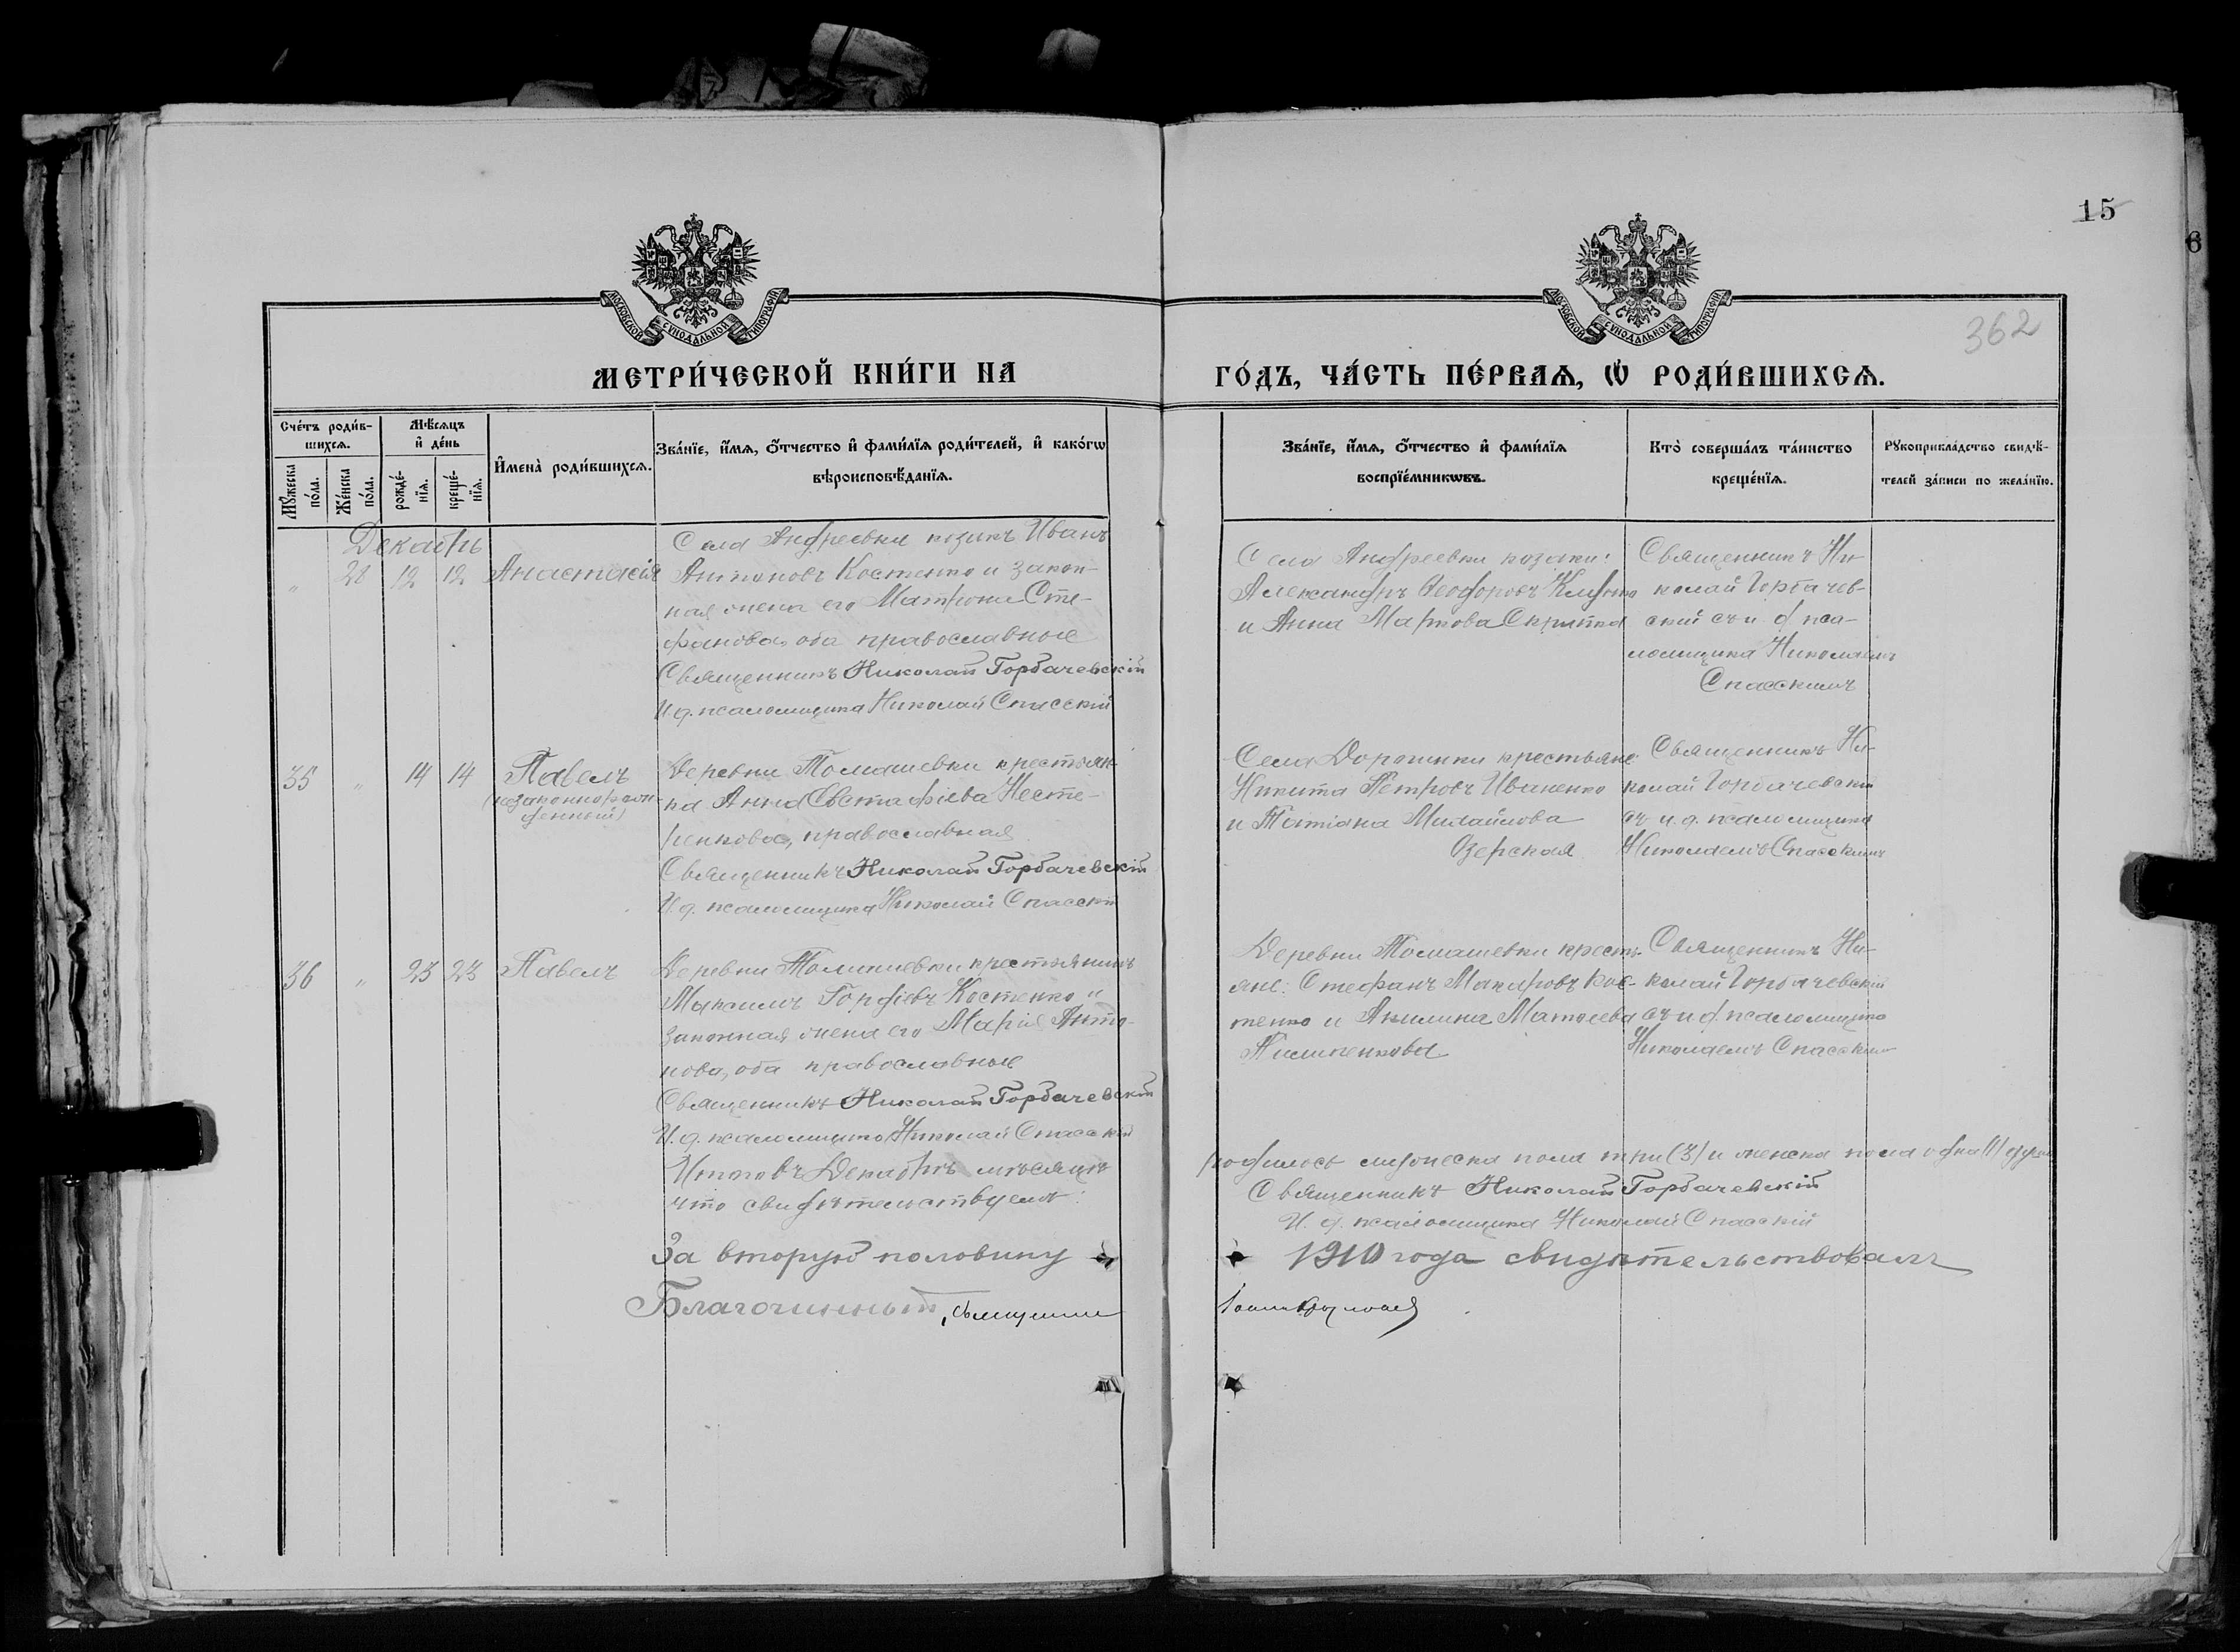 15
6
МОСКОВСКОЙ СѴНОДАЛЬНОЙ ТИПОГРАФІИ
МОСКОВСКОЙ СѴНОДАЛЬНОЙ ТИПОГРАФІИ
362
МЕТРИ́ЧЕСКОЙ КНИ́ГИ НА
ГО́ДЪ, ЧА́СТЬ ПЕ́РВАѦ, Ѡ҆ РОДИ́ВШИХСѦ.
Сче́тъ роди́в-
шихсѧ.
Мꙋ́жеска по́ла.
Же́нска по́ла.
Мѣ́сѧцъ
и҆ де́нь
рожде́-
нїѧ.
креще́-
нїѧ.
И҆мена̀ роди́вшихсѧ.
Зва́нїе, и҆́мѧ, ѻ҆́тчество и҆ фами́лїѧ роди́телей, и҆ како́гѡ
вѣроисповѣ́данїѧ.
Зва́нїе, и҆́мѧ, ѻ҆́тчество и҆ фами́лїѧ
воспрїе́мникѡвъ.
Кто̀ соверша́лъ та́инство
креще́нїѧ.
Рꙋкоприкла́дство свидѣ́-
телей за́писи по жела́нїю.
Декабрь
" 28 12 12 Анастасія
Села Андреевки козакъ Иванъ
Антоновъ Костенко и закон-
ная жена его Матрона Сте-
фанова, оба православные
Священникъ Николай Горбачевскій
И.д. псаломщика Николай Спасскій
Села Андреевки козаки:
Александръ Ѳеодоровъ
и Анна Маркова Скрипка
Священникъ Ни-
колай Горбачев-
скій съ и. д пса-
ломщика Николаемъ
Спасскимъ
35 " 14 14 Павелъ
(незаконнорож-
денный)
Деревни Томашевки крестьян-
ка Анна Евстафіева Несте-
ренкова, православная
Священникъ Николай Горбачевскій
И.д. псаломщика Николай Спасскій
Села Дорошинки крестьяне
Никита Петровъ Иваненко
и Татіана Михайлова
Озерская
Священникъ Ни-
колай Горбачевскій
съ и.д. псаломщика
Николаемъ Спасскимъ
36 " 23 23 Павелъ
Деревни Томашевки крестьянинъ
Максимъ Гордіевъ Костенко и
законная жена его Марія Анто-
нова, оба православные
Священникъ Николай Горбачевскій
И.д. псаломщика Николай Спасскій
Деревни Томашевки кресть-
яне: Стефанъ Макаровъ Кос-
тенко и Акилина
Священникъ Ни-
колай Горбачевскій
съ и д псаломщика
Николаемъ Спасскимъ
Итого въ Декабрѣ мѣсяцѣ
родилось мужеска пола три (3) и женска пола одна (1) душа
что свидѣтельствуемъ:
Священникъ Николай Горбачевскій
И. д. псаломщика Николай Спасскій
За вторую половину
1910 года свидѣтельствовалъ
Благочинный, священникъ
Іоаннъ